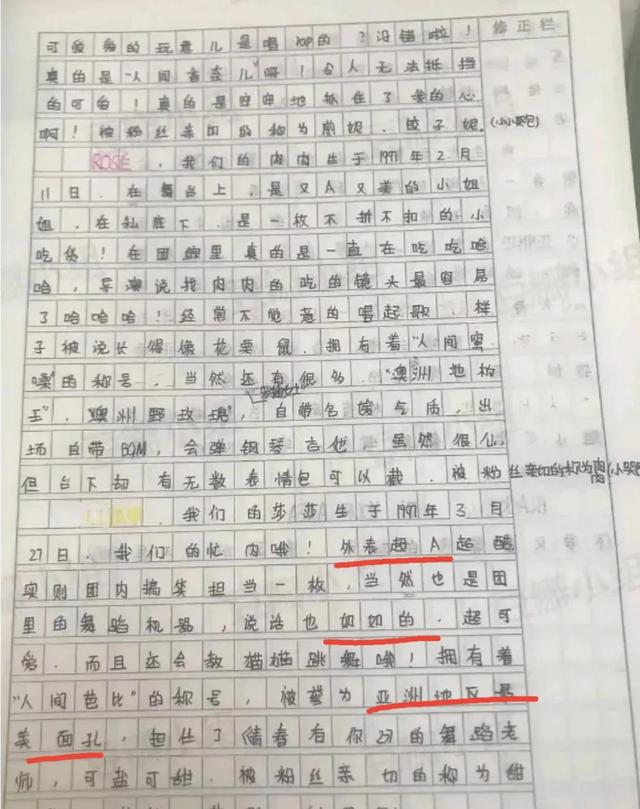 修正栏
可爱爱的玩意儿是唱rap的?没错啦!
真的是“人间香奈儿”呀!令人无法抵挡
的可爱!真的是牢牢地抓住了我的心
啊!被粉丝亲切的称为尼妮、饺子妮。(小哭包)
ROSÉ,我们的肉肉生于1997年2月
11日,在舞台上,是又A又美的小姐
姐,在私底下,是一枚不折不扣的小
吃货!在团综里真的是一直在吃吃哈
哈,导演说找肉肉的吃的镜头最容易
了哈哈哈!经常不觉意的唱起歌,样
子被说长得像花栗鼠,拥有着“人间蜜
嗓”的称号,当然还有很多,“澳洲地构
王”,“澳洲野玫瑰”,自带名媛气质,出
场自带BGM,会弹钢琴吉他,虽然很仙,
但台下却有无数表情包可以截,被粉丝亲切的称为肉肉(小哭包)
,我们的莎莎生于1997年3月
27日,我们的忙内哦!外表超A超酷
实则团内搞笑担当一枚,当然也是团
里的舞蹈机器,说话也奶奶的,超可
爱,而且还会教猫猫跳舞哦!拥有着
“人间芭比”的称号,被誉为亚洲地区最
美面孔,担任了《青春有你2》的舞蹈老
师,可盐可甜,被粉丝亲切的称为甜